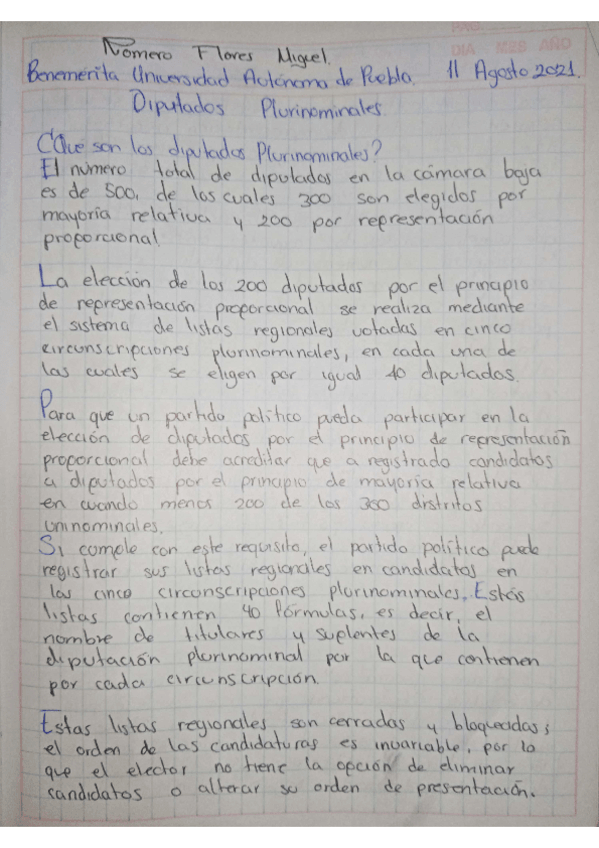 Romero Flores Miguel.
DIA MES AÑO
Benemérita Universidad Autónoma de Puebla. 11 Agosto 2021.
Diputados Plurinominales.
¿Que son los diputados Plurinominales?
El número total de diputados en la cámara baja
es de 500, de los cuales 300 son elegidos por
mayoría relativa y 200 por representación
proporcional.
La elección de los 200 diputados por el principio
de representación proporcional se realiza mediante
el sistema de listas regionales votadas en cinco
circunscripciones plurinominales, en cada una de
las cuales se eligen por igual 40 diputados.
Para que un partido político pueda participar en la
elección de diputados por el principio de representación
proporcional debe acreditar que a registrado candidatos
a diputados por el principio de mayoría relativa
en cuando menos 200 de los 300 distritos
uninominales.
Si comple con este requisito, el partido político puede
registrar sus listas regionales en candidatos en
las cinco circonscripciones plurinominales. Estás
listas contienen 40 fórmulas, es decir, el
nombre de titulares y suplentes de la
diputación plurinominal por la que contienen
por cada circunscripción.
Estas listas regionales son cerradas y bloquecidas;
el orden de las candidaturas es invariable, por lo
que el elector no tiene la opción de eliminar
candidatos o alterar su orden de presentación.